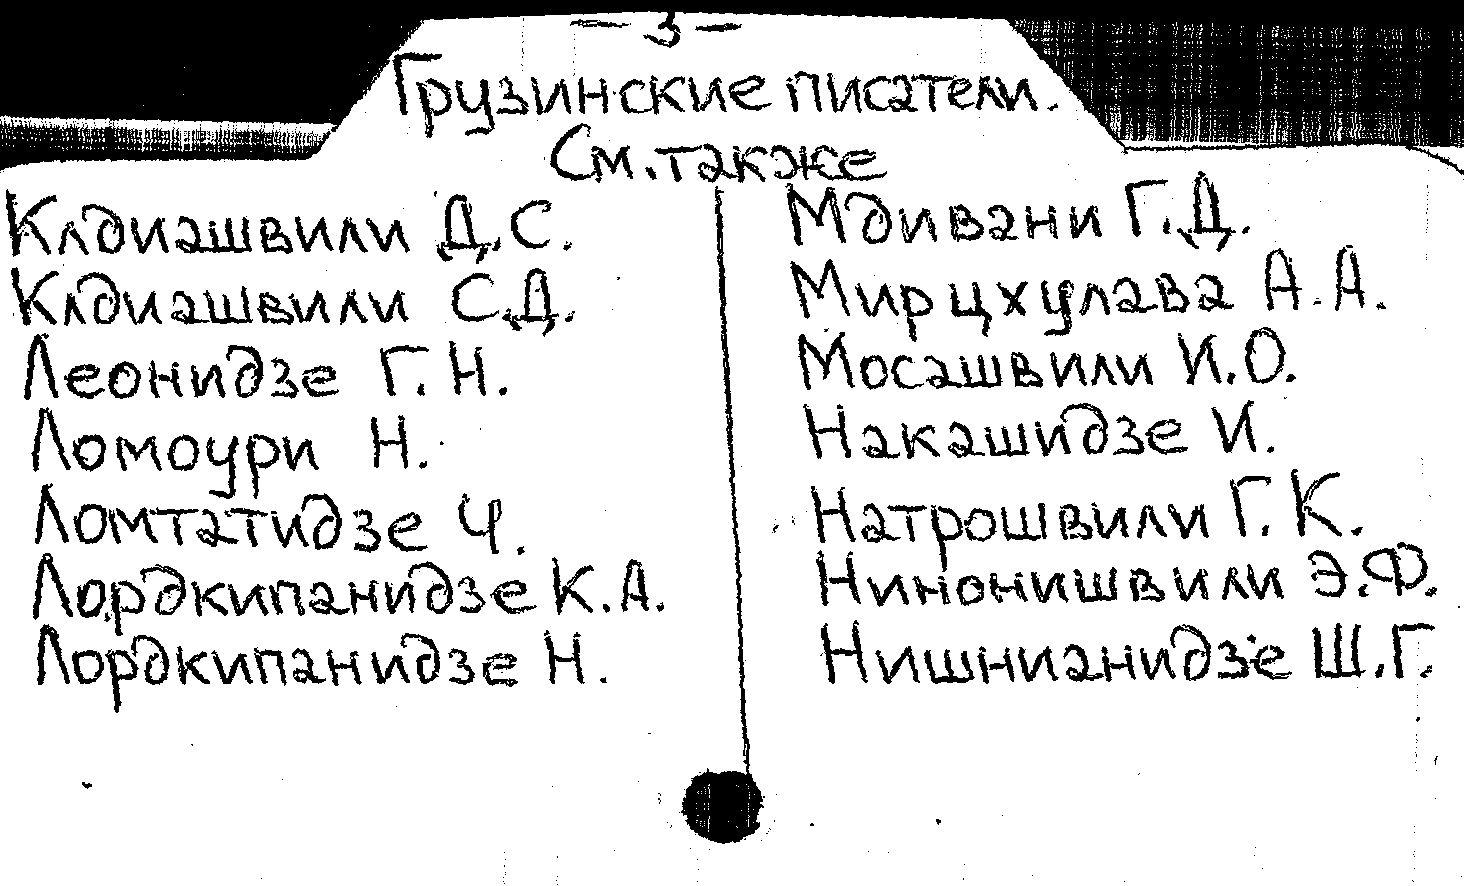 — 3 —
Грузинские писатели.
См. также
Клдиашвили Д.С.
Клдиашвили С.Д.
Леонидзе Г.Н.
Ломоури Н.
Ломтатидзе Ч.
Лордкипанидзе К.А.
Лордкипанидзе Н.
Мдивани Г.Д.
Мирцхулава А.А.
Мосашвили И.О.
Накашидзе И.
Натрошвили Г.К.
Нинонишвили Э.Ф.
Нишнианидзе Ш.Г.